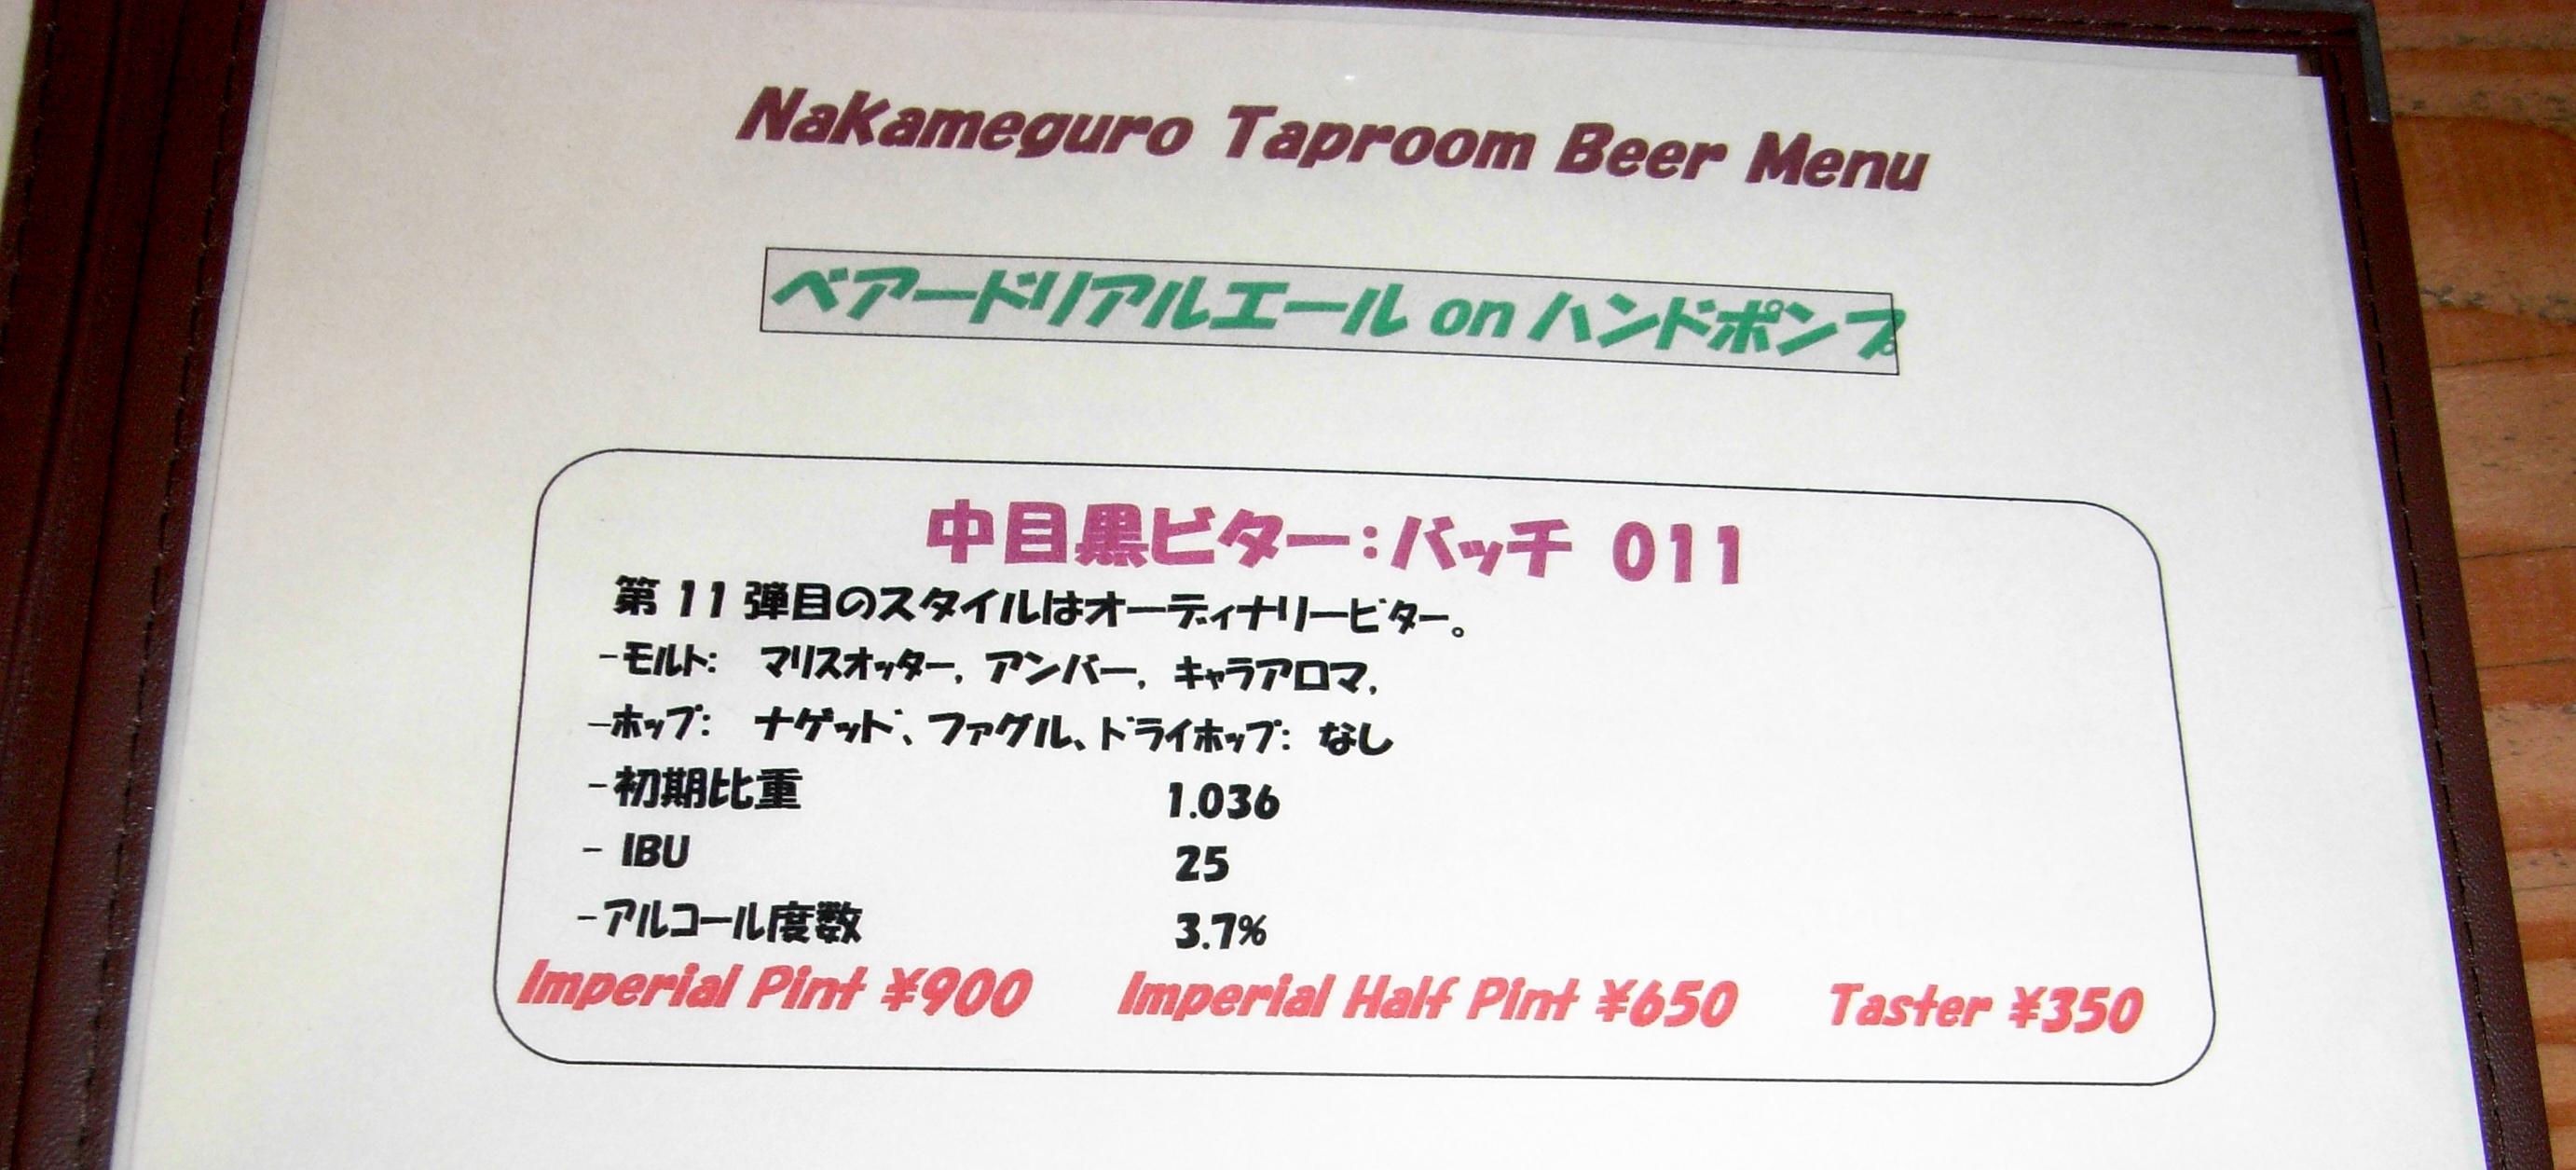 Nakameguro Taproom Beer Menu
ベアードリアルエール on ハンドポンプ
中目黒ビター：バッチ 011
第 11 弾目のスタイルはオーディナリービター。
-モルト： マリスオッター, アンバー, キャラアロマ,
-ホップ： ナゲッド、ファグル、ドライホップ： なし
-初期比重 1.036
- IBU 25
-アルコール度数 3.7%
Imperial Pint ¥900 Imperial Half Pint ¥650 Taster ¥350